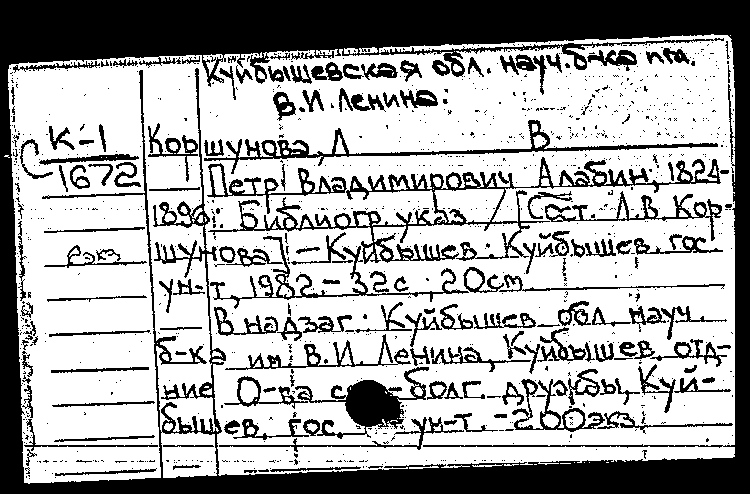 Куйбышевская обл. науч. б-ка им.
В.И. Ленина.
К-1
1672
Коршунова, Л В
Петр Владимирович Алабин, 1824-
1896: Библиогр. указ / [Сост. Л.В. Кор-
шунова] - Куйбышев: Куйбышев. гос.
ун-т, 1982.- 32 с.; 20 cm
В надзаг.: Куйбышев. обл. науч.
б-ка им. В.И. Ленина, Куйбышев. отд-
ние О-ва -болг. дружбы, Куй-
бышев. гос. ун-т. - 200 экз.